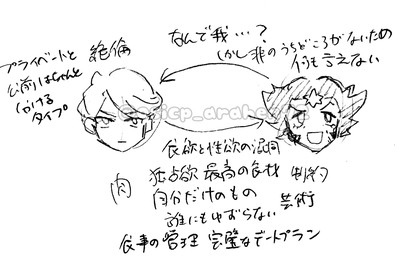 なんで我…?
しかし非のうちどころがないため
何も言えない
プライベートと
公前はちゃんと
分ける
タイプ
絶倫
食欲と性欲の混同
独占欲 最高の食材 制約
肉
自分だけのもの
芸術
誰にもゆずらない
食事の管理 完璧なデートプラン